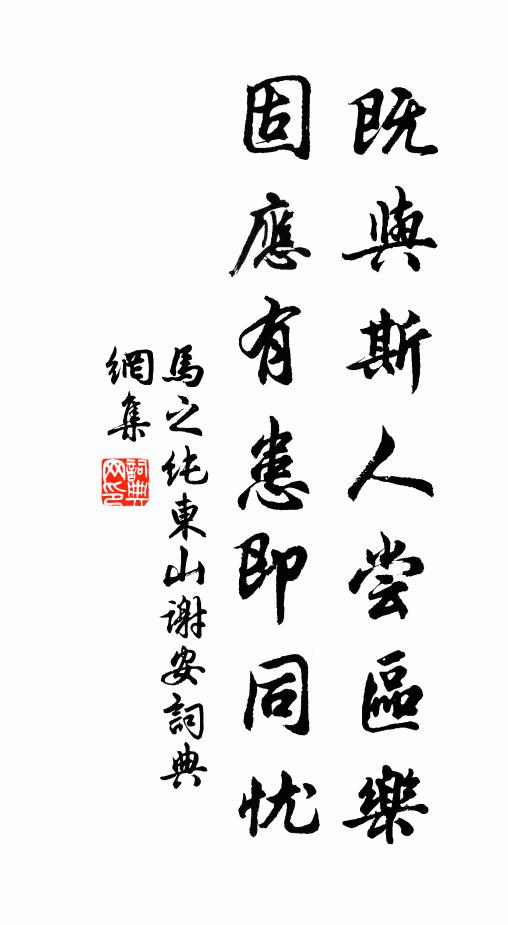 既與斯人尝區樂
固應有患即同忧
馬之純東山謝安詞典
網集
詞典网印